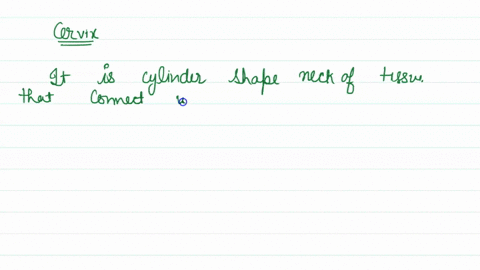 Cervix
It is cylinder shape neck of tissue.
that connect v